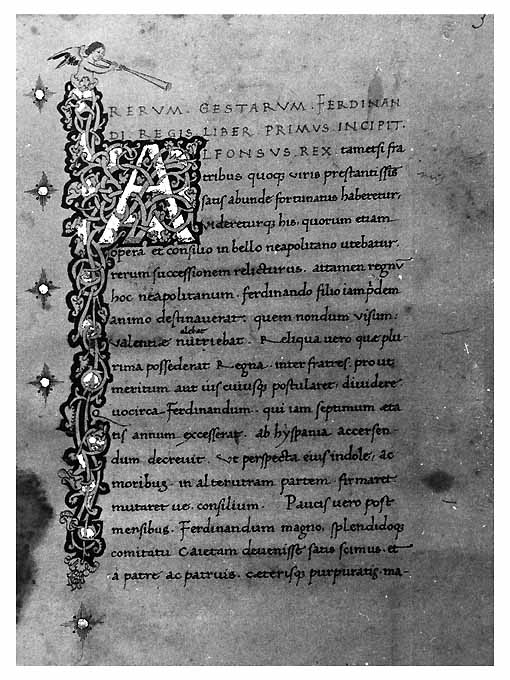 3
RERVM. GESTARVM. FERDINAN
DI. REGIS. LIBER. PRIMVS. INCIPIT.
ALFONSVS. REX. tametsi fra
tribus quoq; viris prestantissis
satis abunde fortunatus haberetur,
videreturq; his, quorum etiam
opera et consilio in bello neapolitano utebatur,
rerum successionem relicturus. attamen regnū
hoc neapolitanum. ferdinando filio iampdem
animo destinauerat. quem nondum visum:
alebat
valentiæ nutriebat. Reliqua vero quæ plu
rima possederat Regna. inter fratres. prout
meritum aut uis cuiusq; postularet, diuidere
uocirca Ferdinandum. qui iam septimum æta
tis annum excesserat. ab hyspania accersen-
dum decreuit. Vt perspecta eius indole, ac
moribus. in alterutram partem firmaret
mutaret ue. consilium. Paucis uero post
mensibus. Ferdinandum magno, splendidoq;
comitatu Caietam deuenisse satis scimus. et
a patre ac patruis. cæterisq; purpuratis. ma-